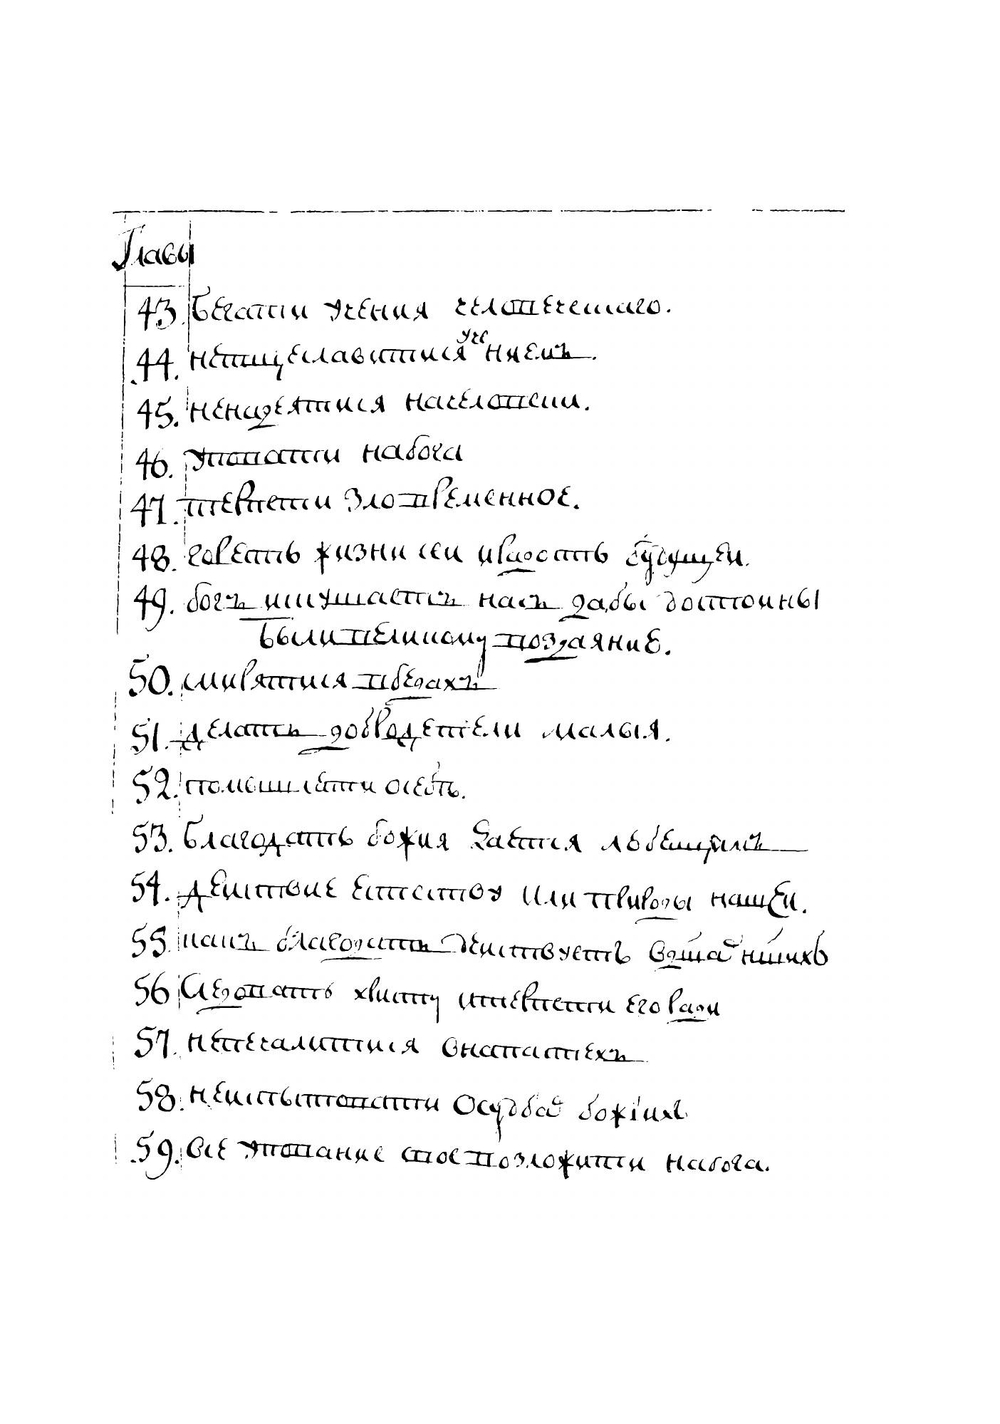 Главы
43. Бегати учения человеческаго.
44. нетщеславитися учениемъ.
45. ненадеятися начеловеки.
46. уповати набога
47. терпети зловременное.
48. горесть жизни сеи ирадость будущеи.
49. богъ искушаетъ насъ дабы достоины
были великому воздаяние.
50. смирятися вбедахъ
51. делать добродетели малыя.
52. помышляти осебѣ.
53. благодать божия дается любящимъ
54. деиствие естества или природы нашеи.
55. какъ благодать деиствуетъ
56 Следовать христу итерпети его ради
57. непечалитися внапастехъ
58. неиспытовати осудбах божіих
59. все упование свое возложити набога.